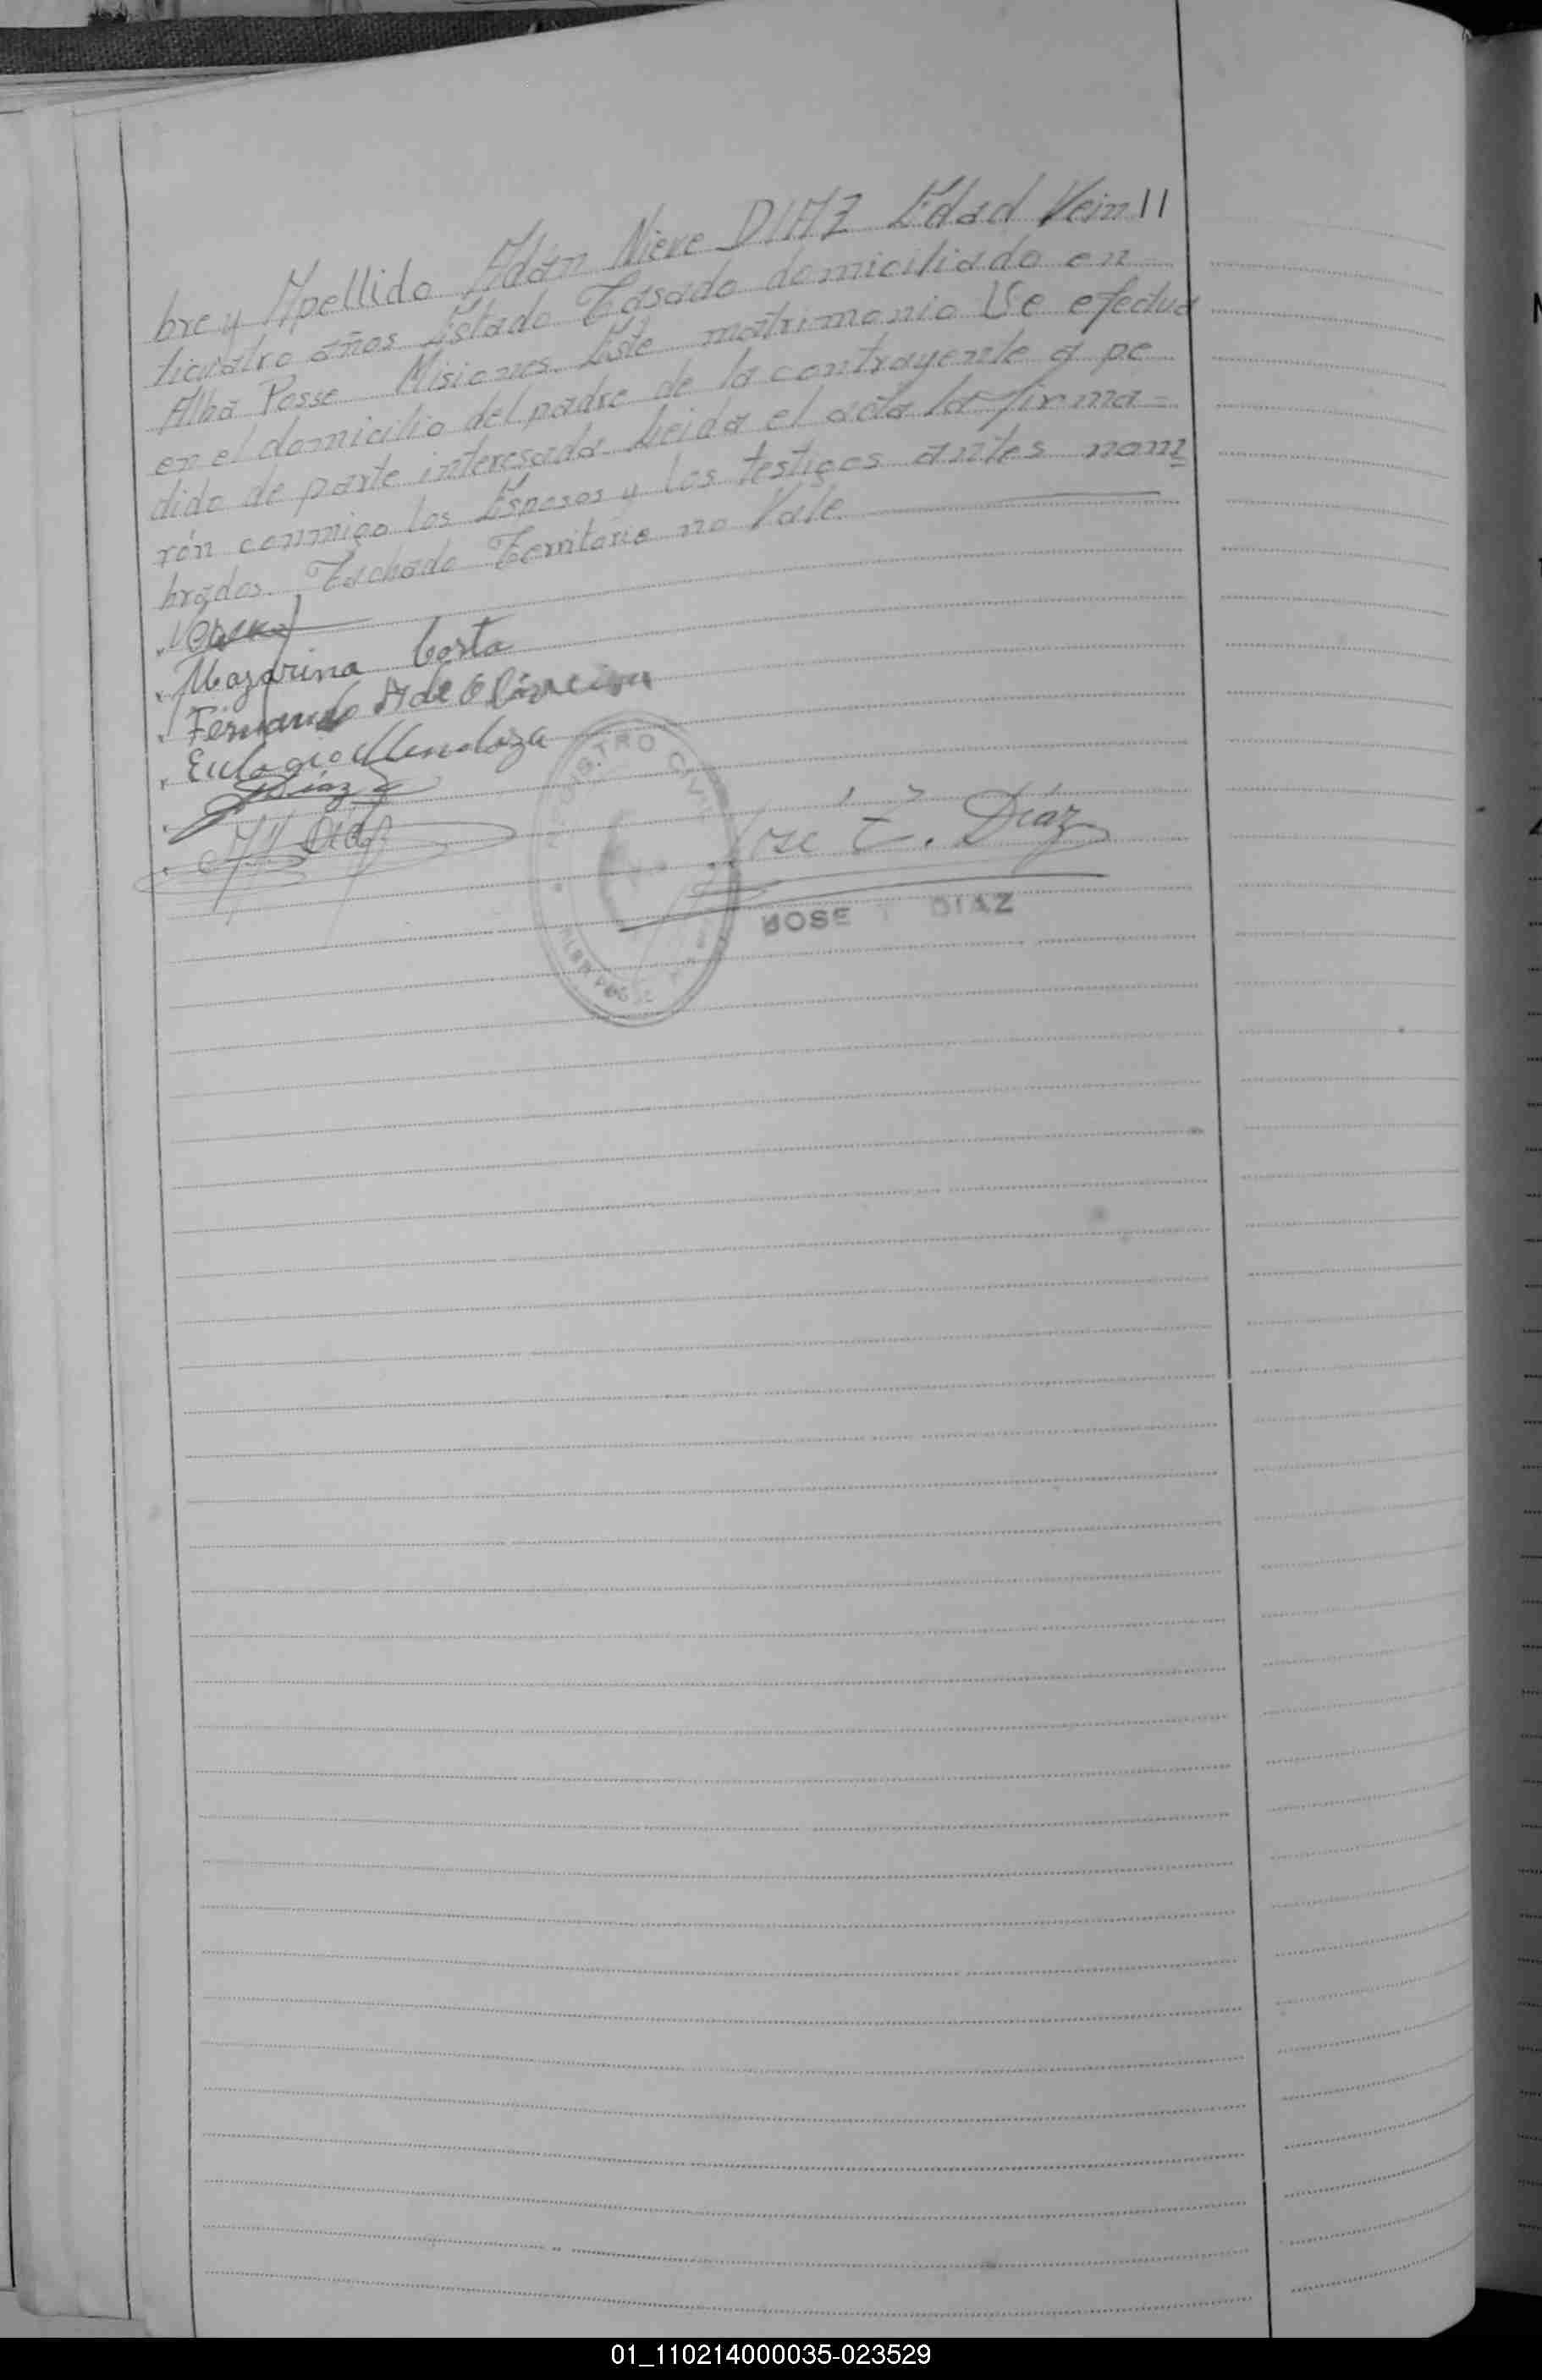 bre y Apellido Adán Nieve DIAZ Edad Vein
ticuatro años Estado Casado domiciliado en
Alba Posse Misiones. Este matrimonio Se efectua
en el domicilio del padre de la contrayente a pe
dido de parte interesada. Leida el acta la firma=
rón conmigo los Esposos y los testigos antes nom
brados. Tachado Territorio no Vale.
Mazarina Costa
Fernando A de Oliveira
Eulogio Mendoza
Diaz
Diaz
REGISTRO CIVIL
ALBA POSSE
José T. Díaz
JOSE T DIAZ
01_110214000035-023529